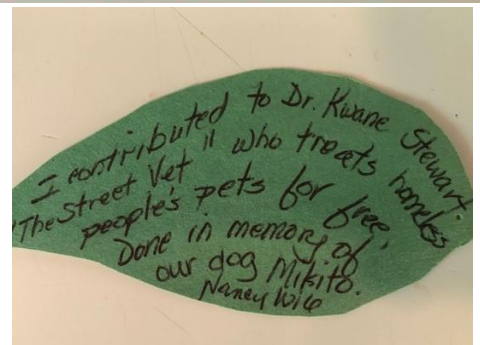 I contributed to Dr. Kwane Stewart,
"The Street Vet" who treats homeless
people's pets for free.
Done in memory of
our dog Mikito.
Nancy